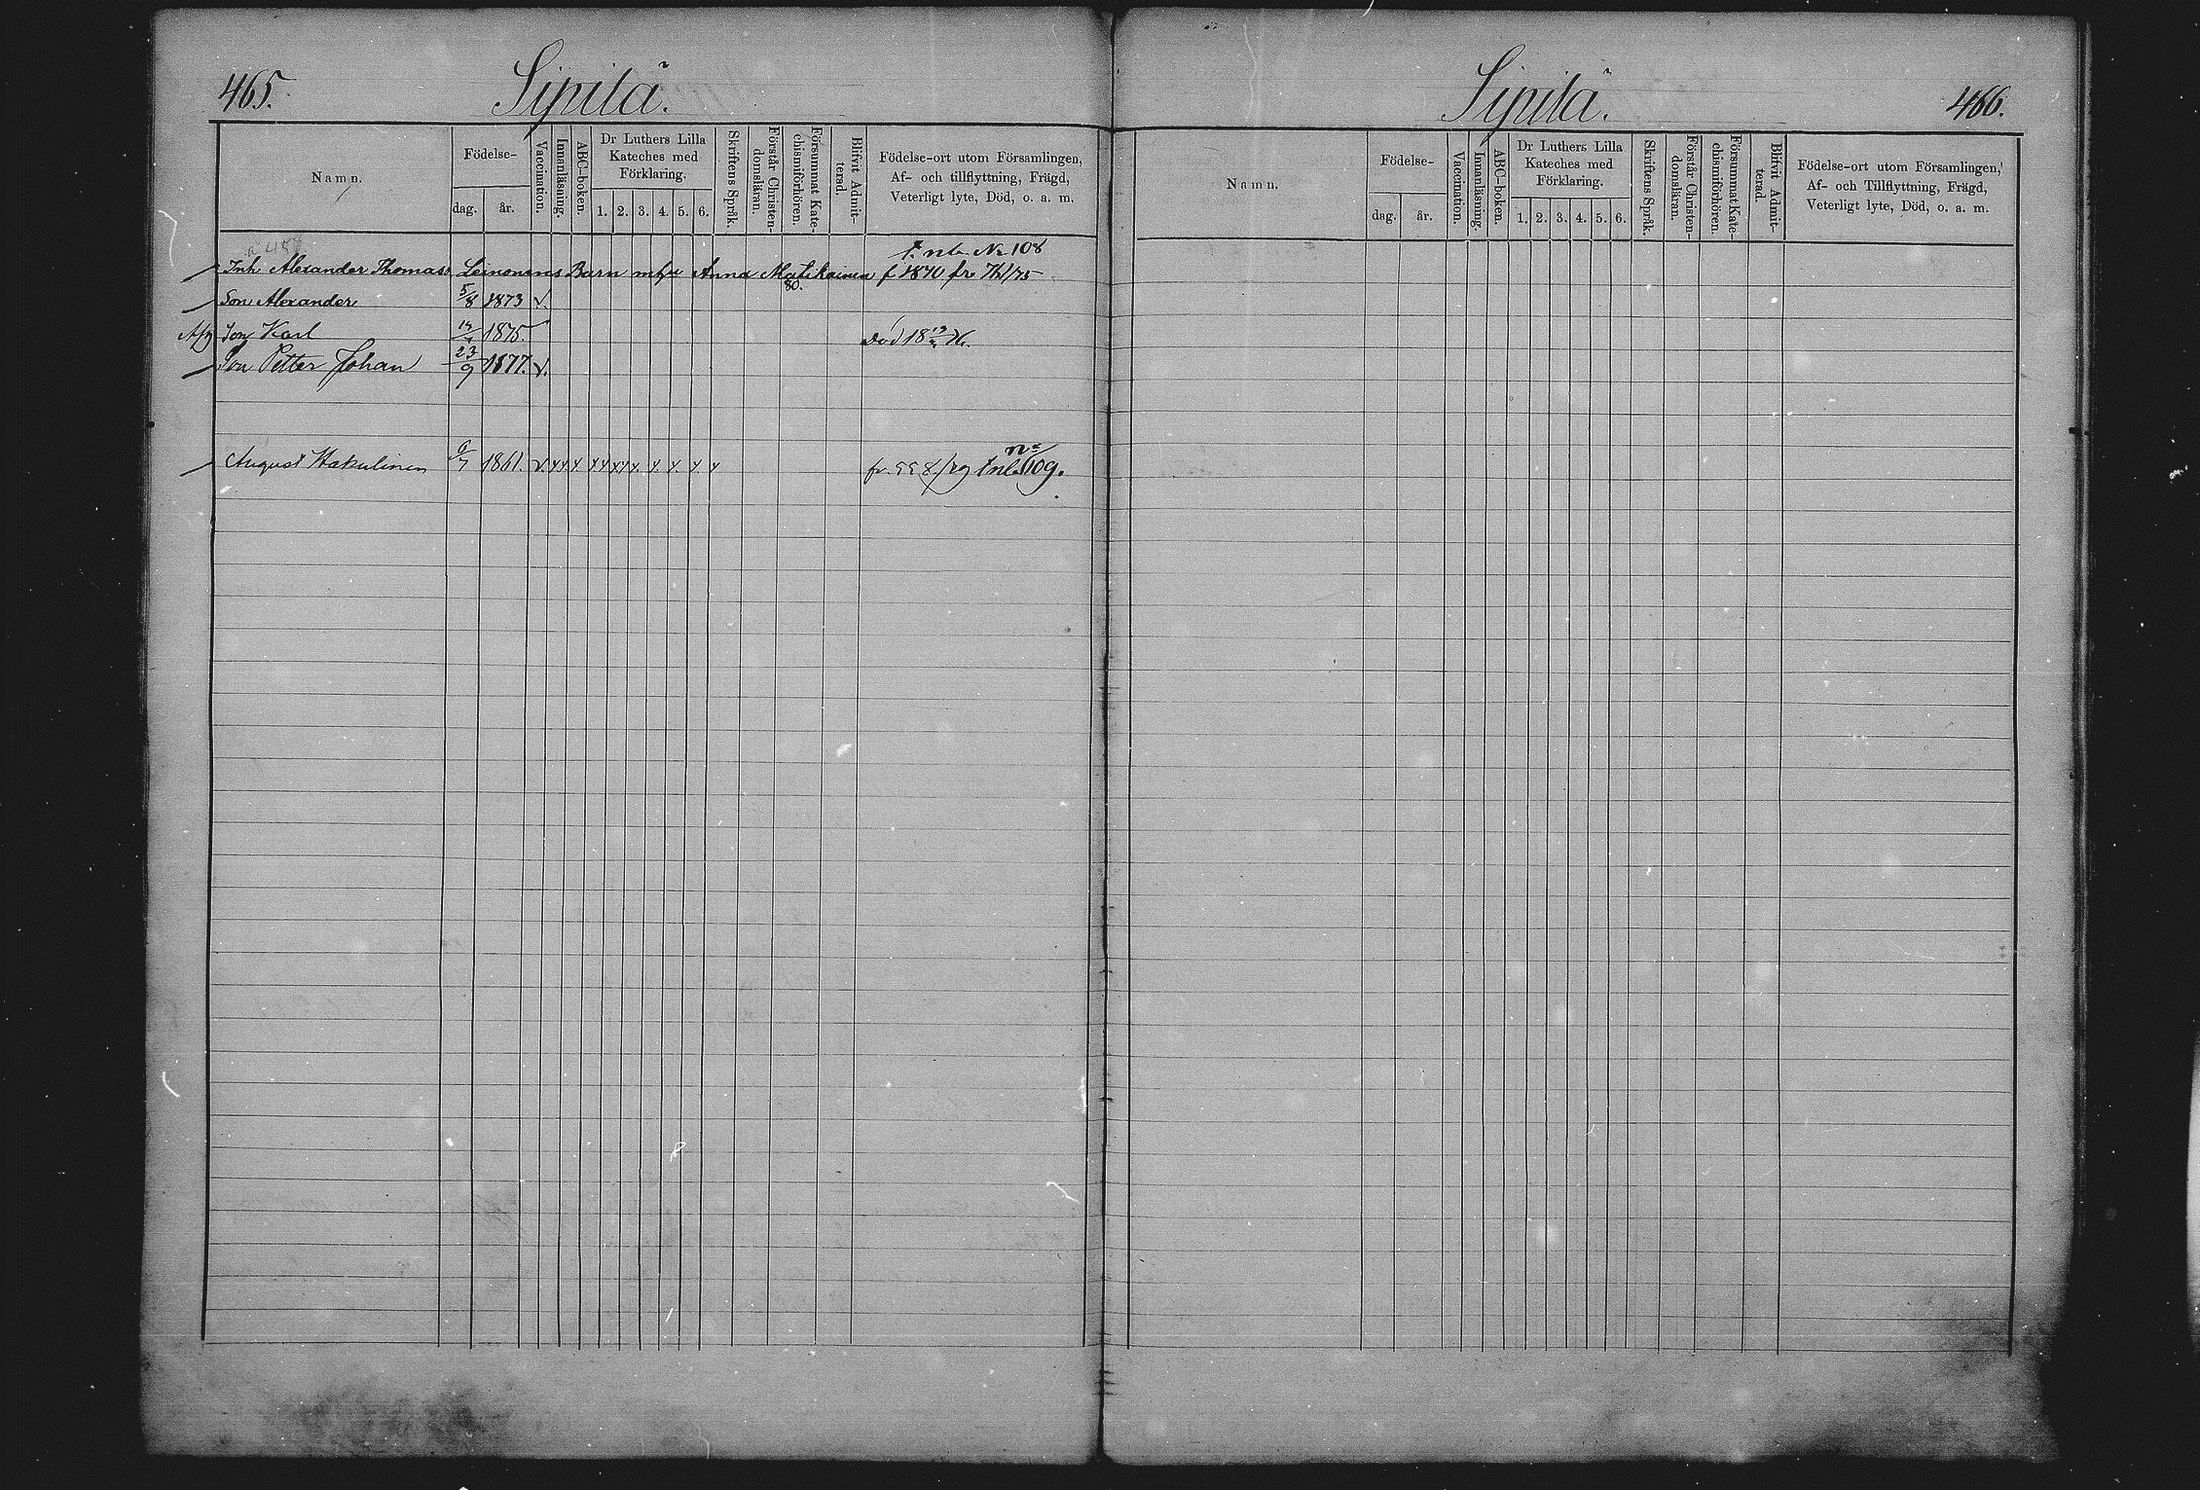 465. Sipilä.
Namn.
Födelse-
dag. år.
Vaccination.
Innanläsning.
ABC-boken.
Dr Luthers Lilla
Kateches med
Förklaring.
1. 2. 3. 4. 5. 6.
Skriftens Språk.
Förstår Christen-
domsläran.
Försummat Kate-
chismiförhören.
Blifvit Admit-
terad.
Födelse-ort utom Församlingen,
Af- och tillflyttning, Frägd,
Veterligt lyte, Död, o. a. m.
No 108
Inh Alexander Thomass Leinonens Barn mhu Anna Matikainen f 1840 fr
80.
Son Alexander 5/8 1873 v.
Son Karl 1875. Död
Son Petter Johan 23/9 1877. v.
August Hakulinen 6/7 1861. v x x x x x x x x x x x x 109.
Sipilä. 466.
Namn.
Födelse-
dag. år.
Vaccination.
Innanläsning.
ABC-boken.
Dr Luthers Lilla
Kateches med
Förklaring.
1. 2. 3. 4. 5. 6.
Skriftens Språk.
Förstår Christen-
domsläran.
Försummat Kate-
chismiförhören.
Blifvit Admit-
terad.
Födelse-ort utom Församlingen,
Af- och Tillflyttning, Frägd,
Veterligt lyte, Död, o. a. m.